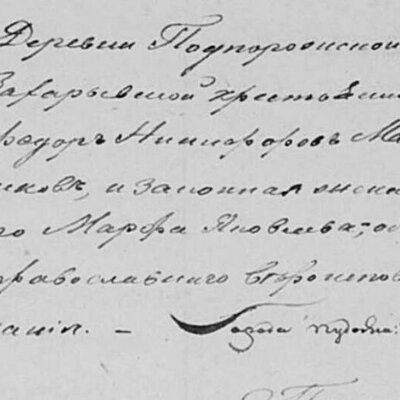 Деревни Подпорожской
Захарьевской крестьянин
Ѳедоръ Никифоровъ Ма
ковъ, и законная жена
го Марѳа Яковлева; об
православнаго вѣроиспов
данія. — Города Пудожа